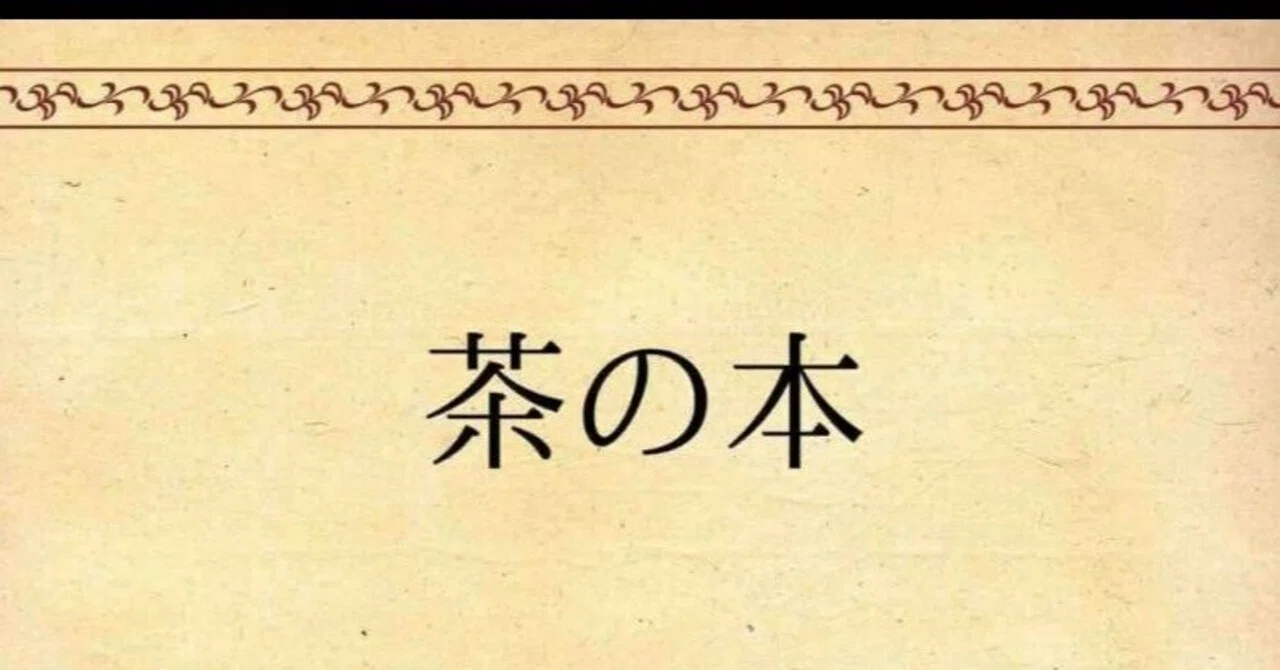 茶の本